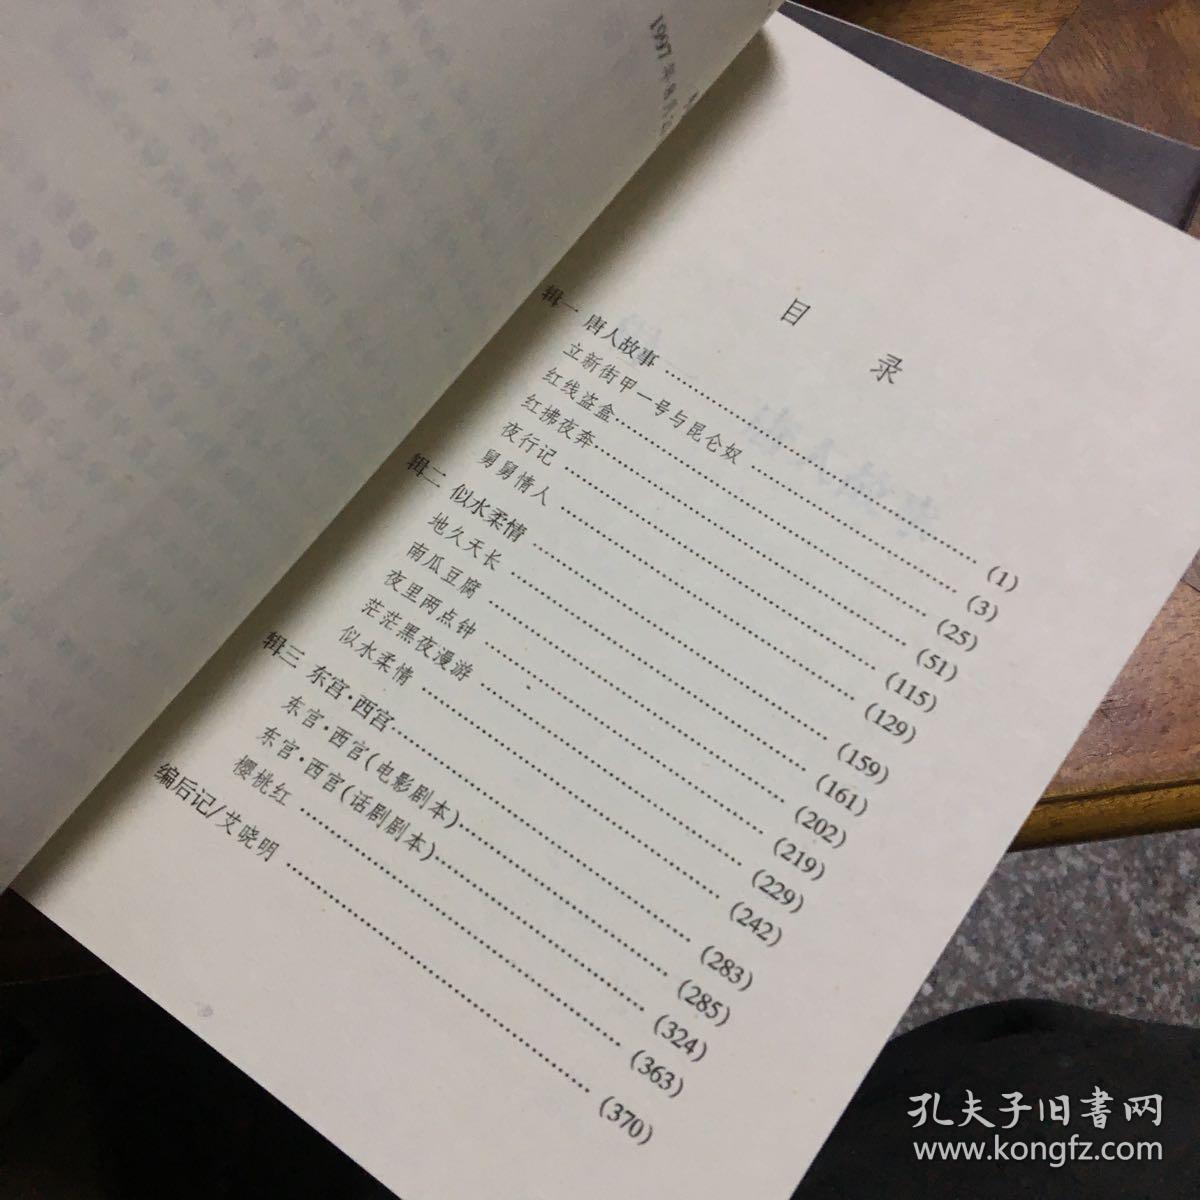 1997年8月
目 录
辑一 唐人故事 (1)
立新街甲一号与昆仑奴 (3)
红线盗盒 (25)
红拂夜奔 (51)
夜行记 (115)
舅舅情人 (129)
辑二 似水柔情 (159)
地久天长 (161)
南瓜豆腐 (202)
夜里两点钟 (219)
茫茫黑夜漫游 (229)
似水柔情 (242)
辑三 东宫·西宫 (283)
东宫·西宫(电影剧本) (285)
东宫·西宫(话剧剧本) (324)
樱桃红 (363)
编后记/艾晓明 (370)
孔夫子旧書网
www.kongfz.com